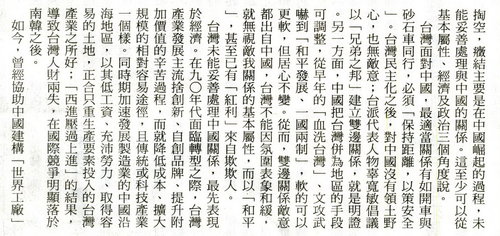 掏空，癥結主要是在中國崛起的過程，未
能妥善處理與中國的關係。這至少可以從
基本屬性、經濟及政治三個角度說。
台灣面對中國，最適當關係有如開車與
砂石車同行，必須「保持距離，以策安全
」。台灣民主化之後，對中國沒有領土野
心，也無敵意；台派代表人物辜寬敏倡議
以「兄弟之邦」建立雙邊關係，就是明證
。另一方面，中國把台灣併為地區的手段
可調整，從早年的「血洗台灣」、文攻武
嚇到「和平發展、一國兩制」，軟的可以
更軟，但居心不變。從而，雙邊關係敵意
都出自中國，台灣不能因氛圍表象和緩，
就無視敵我關係的基本屬性，而以「和平
」，甚至已有「紅利」來自欺欺人。
台灣未能妥善處理中國關係，最先表現
於經濟。在九〇年代面臨轉型之際，台灣
產業發展主流捨創新、自創品牌、提升附
加價值的辛苦過程，而就降低成本、擴大
規模的相對容易途徑，且傳統或科技產業
一個樣。同時期加速發展製造業的中國沿
海地區，以其低工資、充沛勞力、取得容
易的土地，正合只重生產要素投入的台灣
產業之所好；「西進壓過上進」的結果，
導致台灣人財兩失，在國際競爭明顯落於
南韓之後。
如今，曾經協助中國建構「世界工廠」